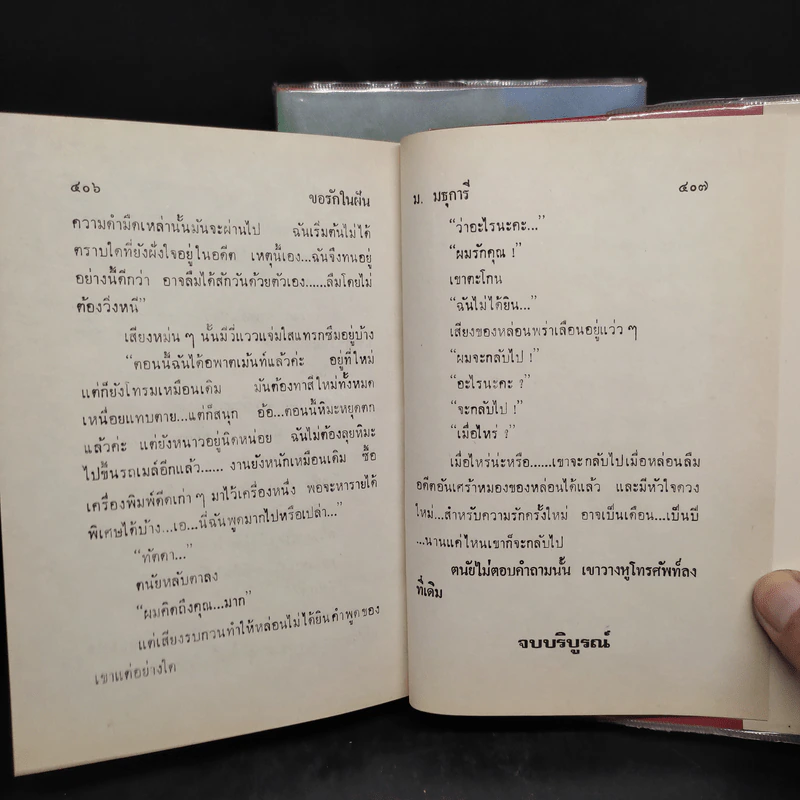 ๔๐๖
ขอรักในฝัน
ความดำมืดเหล่านั้นมันจะผ่านไป ฉันเริ่มต้นไม่ได้
ตราบใดที่ยังฝังใจอยู่ในอดีต เหตุนี้เอง...ฉันจึงทนอยู่
อย่างนี้ดีกว่า อาจลืมได้สักวันด้วยตัวเอง......ลืมโดยไม่
ต้องวิ่งหนี”
เสียงหม่น ๆ นั้นมีวี่แววแจ่มใสแทรกซึมอยู่บ้าง
“ตอนนี้ฉันได้อพาตเม้นท์แล้วค่ะ อยู่ที่ใหม่
แต่ก็ยังโทรมเหมือนเดิม มันต้องทาสีใหม่ทั้งหมด
เหนื่อยแทบตาย...แต่ก็สนุก อ้อ...ตอนนี้หิมะหยุดตก
แล้วค่ะ แต่ยังหนาวอยู่นิดหน่อย ฉันไม่ต้องลุยหิมะ
ไปขึ้นรถเมล์อีกแล้ว...... งานยังหนักเหมือนเดิม ซื้อ
เครื่องพิมพ์ดีดเก่า ๆ มาไว้เครื่องหนึ่ง พอจะหารายได้
พิเศษได้บ้าง...เอ...นี่ฉันพูดมากไปหรือเปล่า...”
“ทัตตา...”
ตนัยหลับตาลง
“ผมคิดถึงคุณ...มาก”
แต่เสียงรบกวนทำให้หล่อนไม่ได้ยินคำพูดของ
เขาแต่อย่างใด
ม. มธุการี
๔๐๗
“ว่าอะไรนะคะ...”
“ผมรักคุณ !”
เขาตะโกน
“ฉันไม่ได้ยิน...”
เสียงของหล่อนพร่าเลือนอยู่แว่ว ๆ
“ผมจะกลับไป !”
“อะไรนะคะ ?”
“จะกลับไป !”
“เมื่อไหร่ ?”
เมื่อไหร่น่ะหรือ......เขาจะกลับไปเมื่อหล่อนลืม
อดีตอันเศร้าหมองของหล่อนได้แล้ว และมีหัวใจดวง
ใหม่...สำหรับความรักครั้งใหม่ อาจเป็นเดือน...เป็นปี
...นานแค่ไหนเขาก็จะกลับไป
ตนัยไม่ตอบคำถามนั้น เขาวางหูโทรศัพท์ลง
ที่เดิม
จบบริบูรณ์